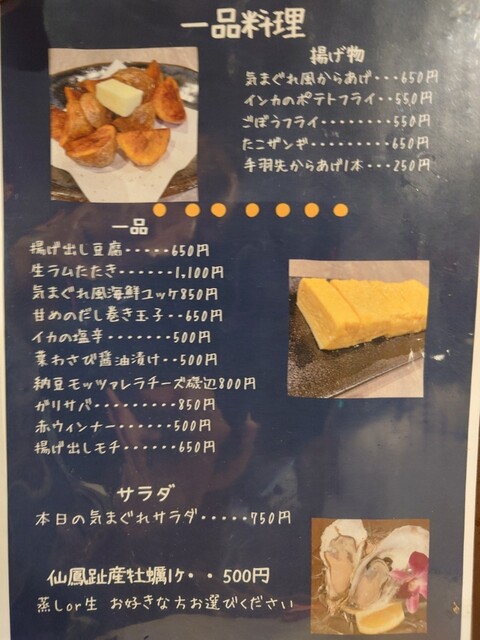 一品料理
揚げ物
気まぐれ風からあげ・・・650円
インカのポテトフライ・・550円
ごぼうフライ・・・・・・・・550円
たこザンギ・・・・・・・・・650円
手羽先からあげ1本・・・250円
一品
揚げ出し豆腐・・・・・650円
生ラムたたき・・・・・・1,100円
気まぐれ風海鮮ユッケ850円
甘めのだし巻き玉子・・650円
イカの塩辛・・・・・・・500円
葉わさび醤油漬け・・500円
納豆モッツァレラチーズ磯辺800円
ガリサバ・・・・・・・・・850円
赤ウィンナー・・・・・・500円
揚げ出しモチ・・・・・・650円
サラダ
本日の気まぐれサラダ・・・・・750円
仙鳳趾産牡蠣1ケ・・500円
蒸しor生 お好きな方お選びください